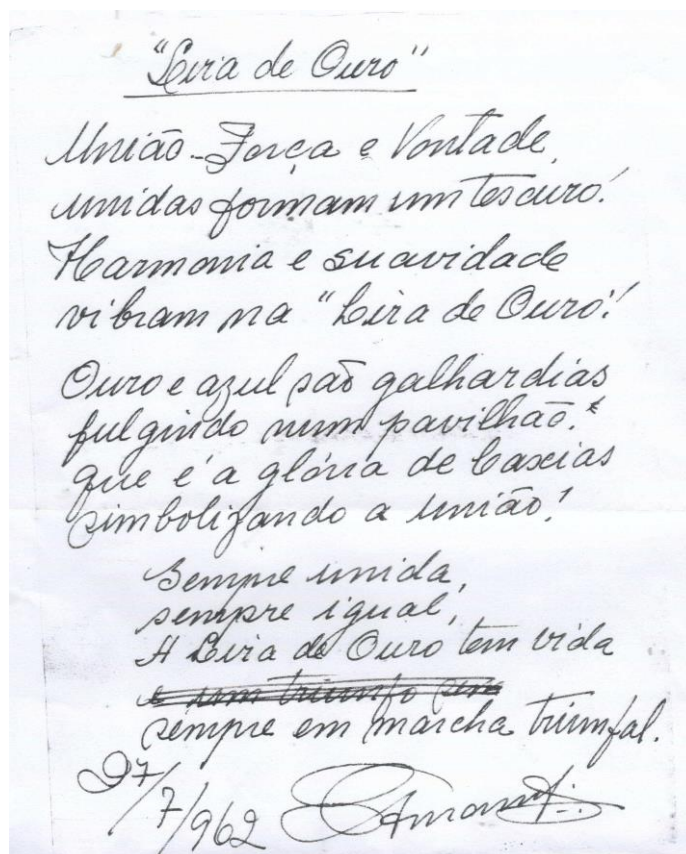 "Lira de Ouro"
União - Força e Vontade,
unidas formam um tesouro!
Harmonia e suavidade
vibram na "Lira de Ouro!
Ouro e azul são galhardias
fulgindo num pavilhão.*
que é a glória de Caxias
simbolizando a união!
Sempre unida,
sempre igual,
A Lira de Ouro tem vida
e um triunfo sem
sempre em marcha triunfal.
27/7/962